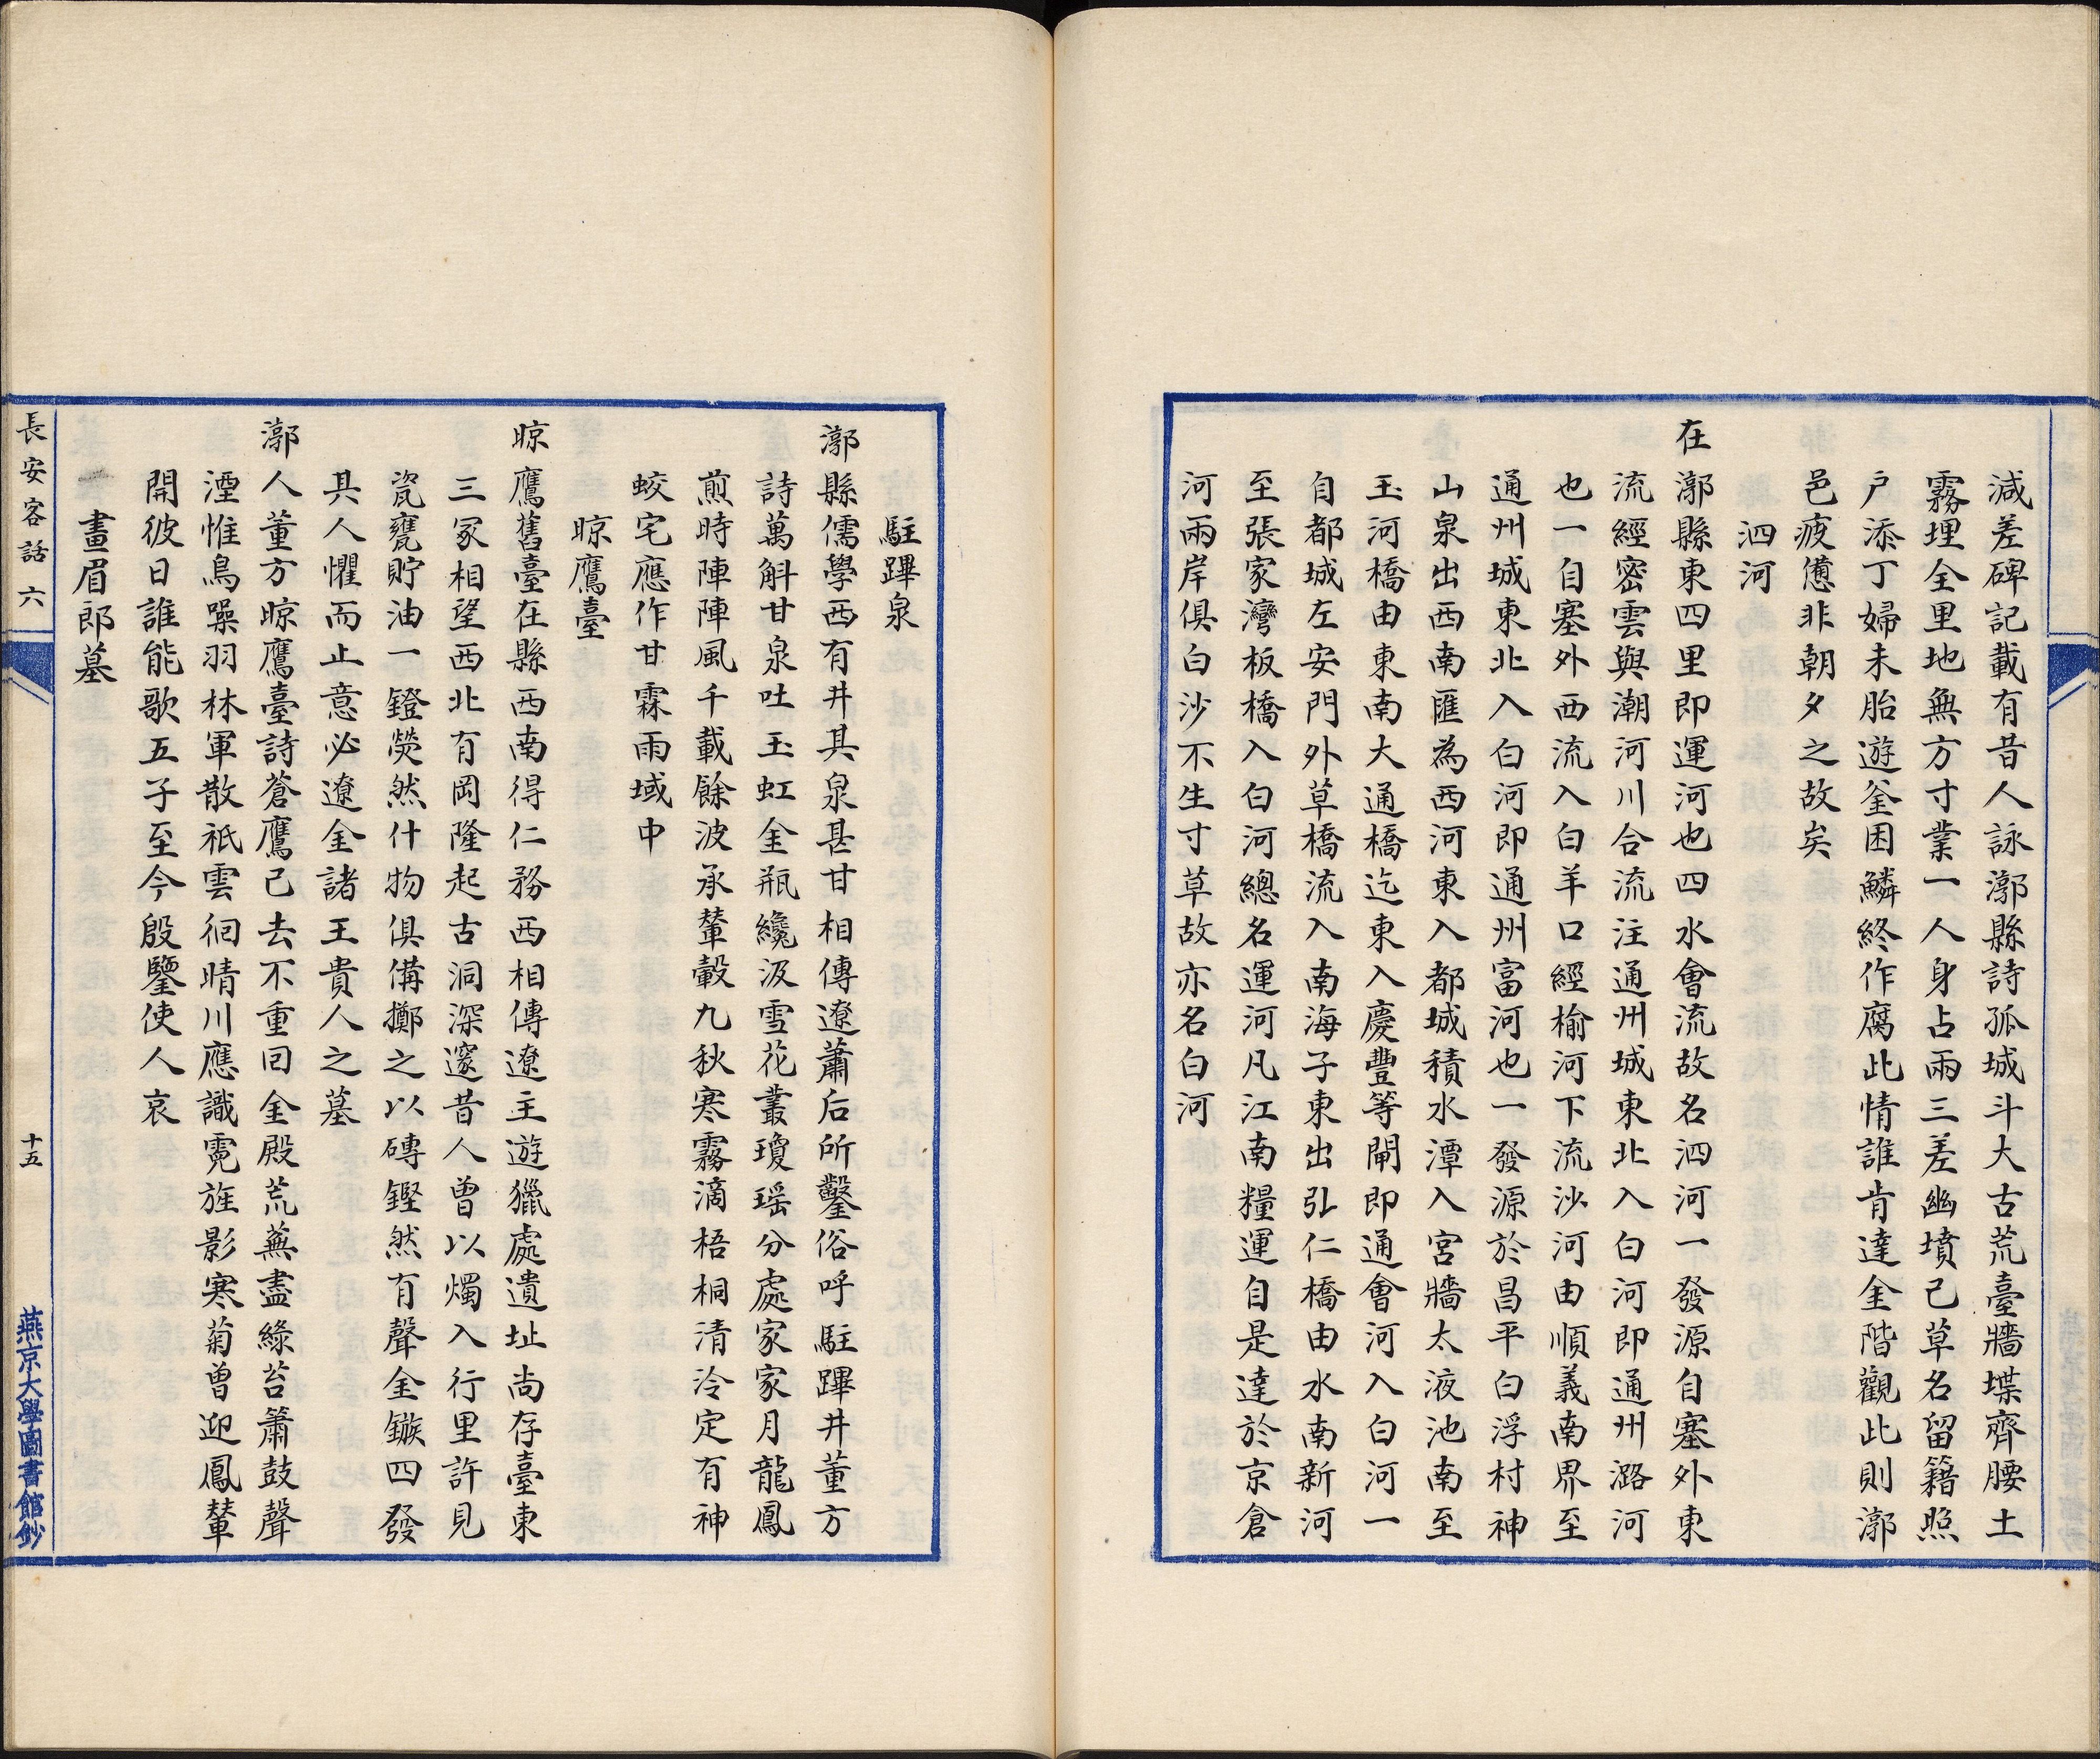 減差碑記載有昔人詠漷縣詩孤城斗大古荒臺牆堞齊腰土
霧埋全里地無方寸業一人身占兩三差幽墳己草名留籍照
戶添丁婦未胎遊釜困鱗終作腐此情誰肯達金階觀此則漷
邑疲憊非朝夕之故矣
泗河
在漷縣東四里即運河也四水會流故名泗河一發源自塞外東
流經密雲與潮河川合流注通州城東北入白河即通州潞河
也一自塞外西流入白羊口經榆河下流沙河由順義南界至
通州城東北入白河即通州富河也一發源於昌平白浮村神
山泉出西南匯為西河東入都城積水潭入宮牆太液池南至
玉河橋由東南大通橋迄東入慶豐等閘即通會河入白河一
自都城左安門外草橋流入南海子東出弘仁橋由水南新河
至張家灣板橋入白河總名運河凡江南糧運自是達於京倉
河兩岸俱白沙不生寸草故亦名白河
駐蹕泉
漷縣儒學西有井其泉甚甘相傳遼蕭后所鑿俗呼駐蹕井董方
詩萬斛甘泉吐玉虹金瓶纔汲雪花叢瓊瑤分處家家月龍鳳
煎時陣陣風千載餘波承輦轂九秋寒霧滴梧桐清泠定有神
蛟宅應作甘霖雨域中
晾鷹臺
晾鷹舊臺在縣西南得仁務西相傳遼主遊獵處遺址尚存臺東
三冢相望西北有岡隆起古洞深邃昔人曾以燭入行里許見
瓷甕貯油一鐙熒然什物俱備擲之以磚鏗然有聲金鏃四發
其人懼而止意必遼金諸王貴人之墓
漷人董方晾鷹臺詩蒼鷹己去不重回金殿荒蕪盡綠苔簫鼓聲
湮惟鳥噪羽林軍散祇雲徊晴川應識霓旌影寒菊曾迎鳳輦
開彼日誰能歌五子至今殷鑒使人哀
畫眉郎墓
長安客話 六
十五
燕京大學圖書館鈔